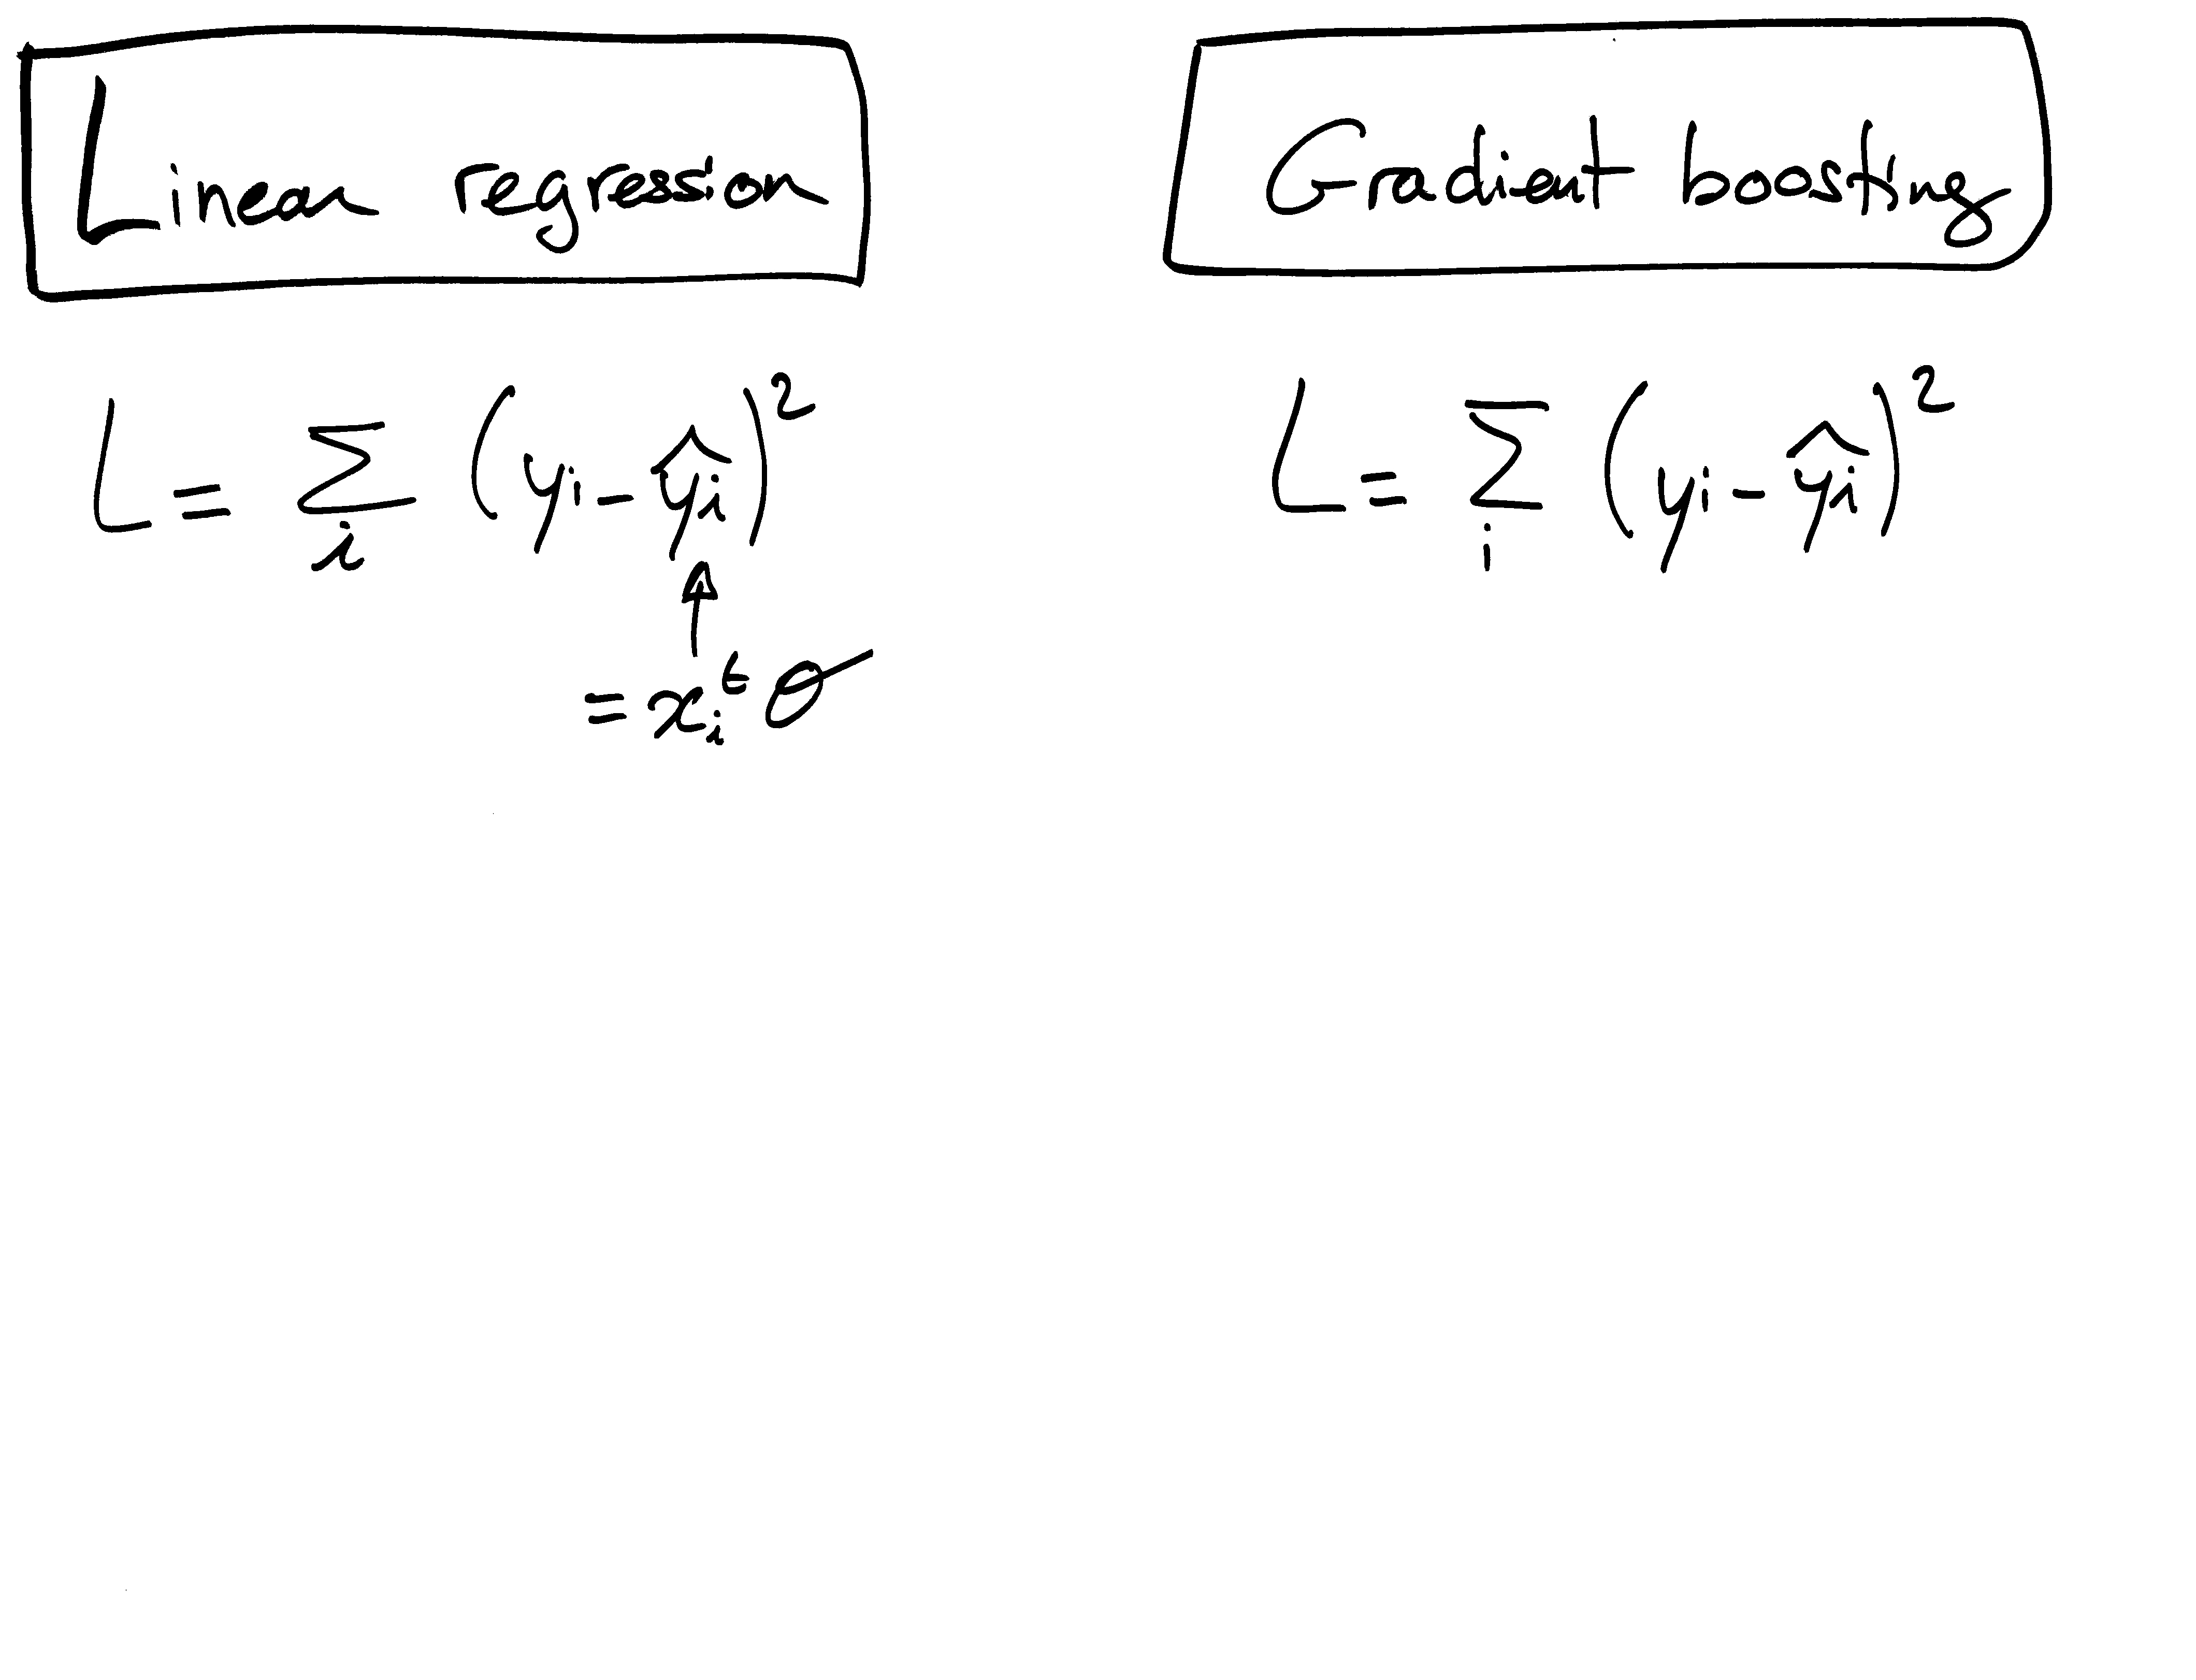 Linear regression
L = ∑ᵢ (yᵢ - ŷᵢ)²
↑
= xᵢᵗ θ
Gradient boosting
L = ∑ᵢ (yᵢ - ŷᵢ)²